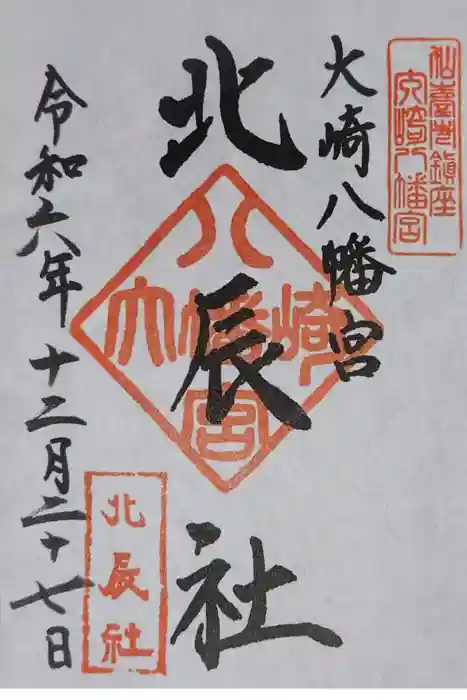 仙臺市鎮座
大崎八幡宮
大崎八幡宮
北辰社
八幡宮
大崎
北辰社
令和六年十二月二十七日